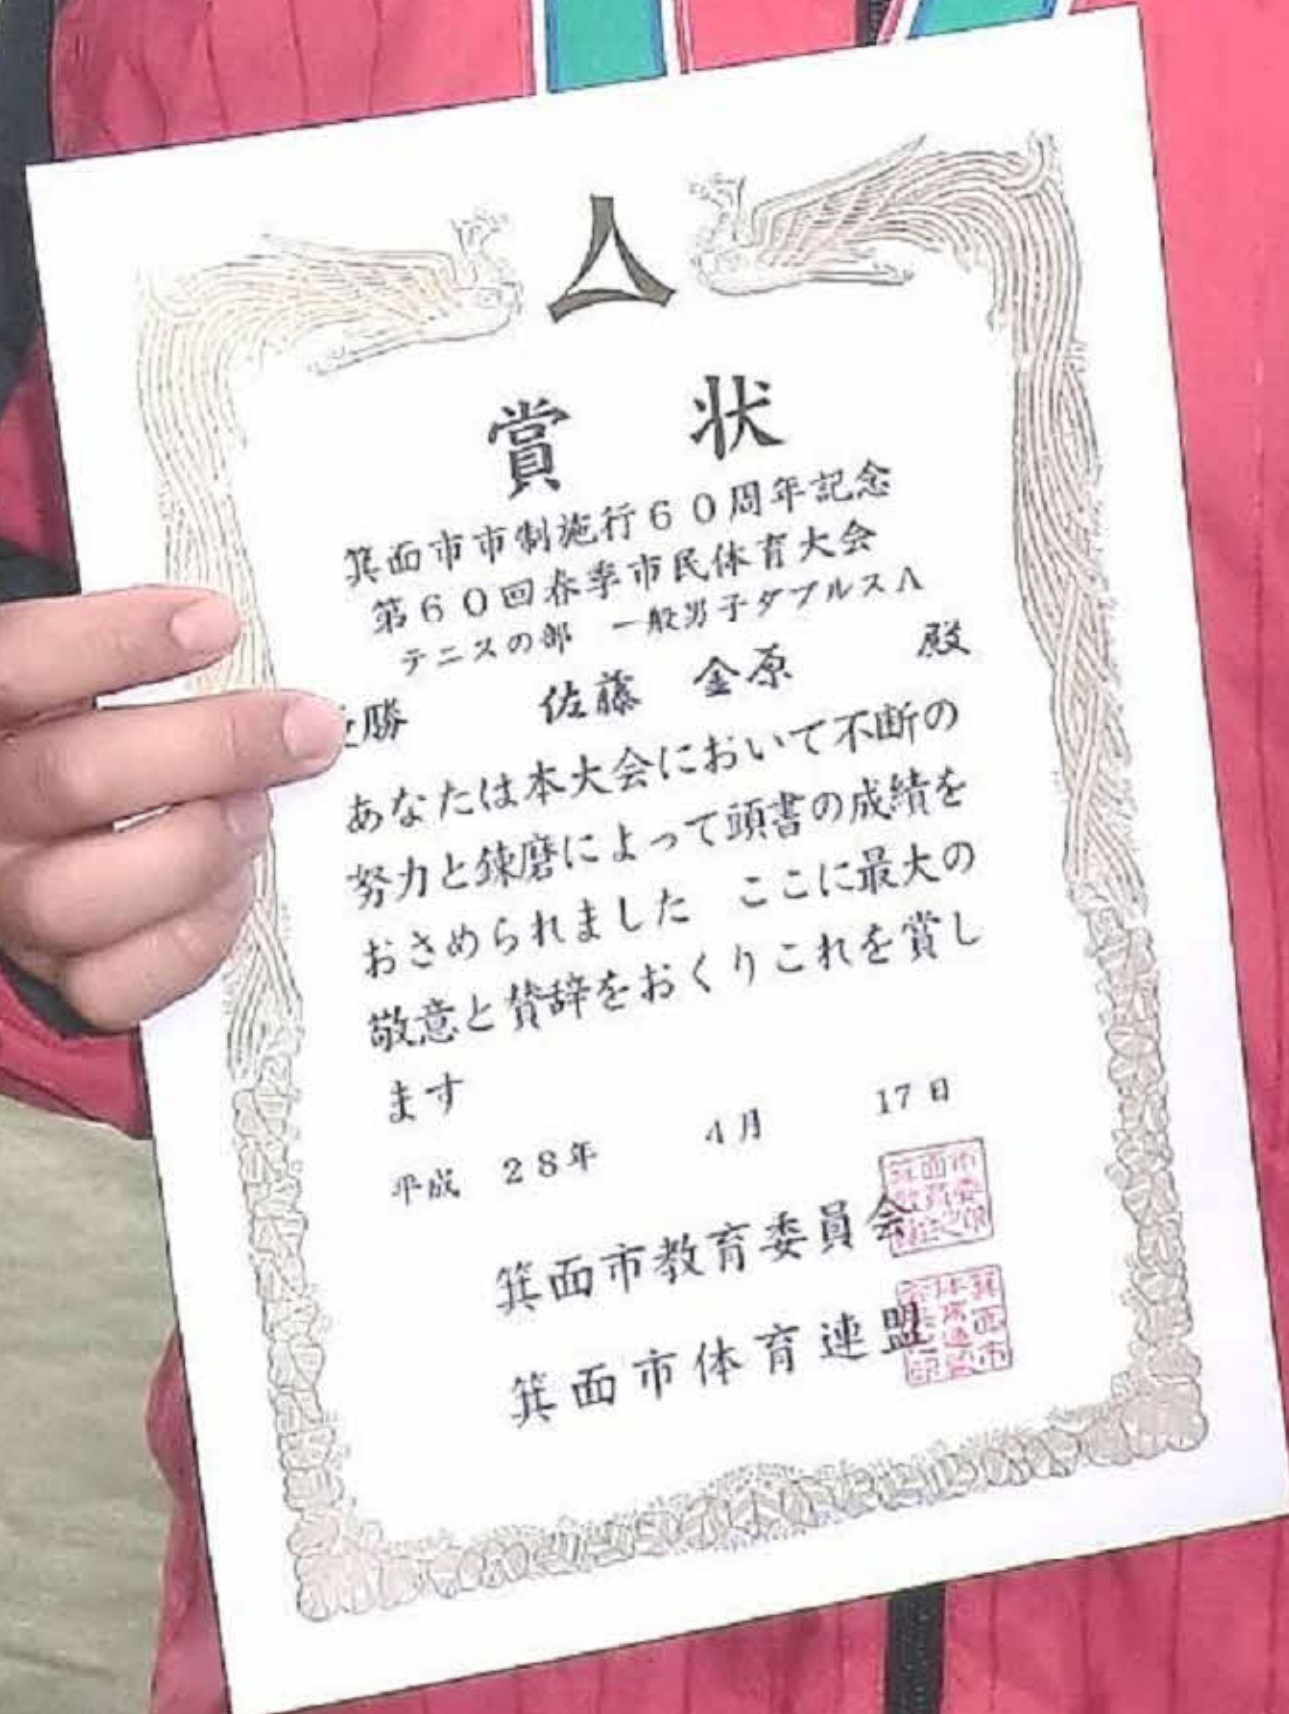 賞状
箕面市市制施行60周年記念
第60回春季市民体育大会
テニスの部 一般男子ダブルスA
勝 佐藤 金原 殿
あなたは本大会において不断の
努力と錬磨によって頭書の成績を
おさめられました ここに最大の
敬意と賛辞をおくりこれを賞し
ます
平成 28年 4月 17日
箕面市教育委員会
箕面市体育連盟